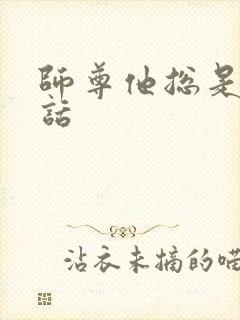 師尊他總是
話
沾衣未摘的喵